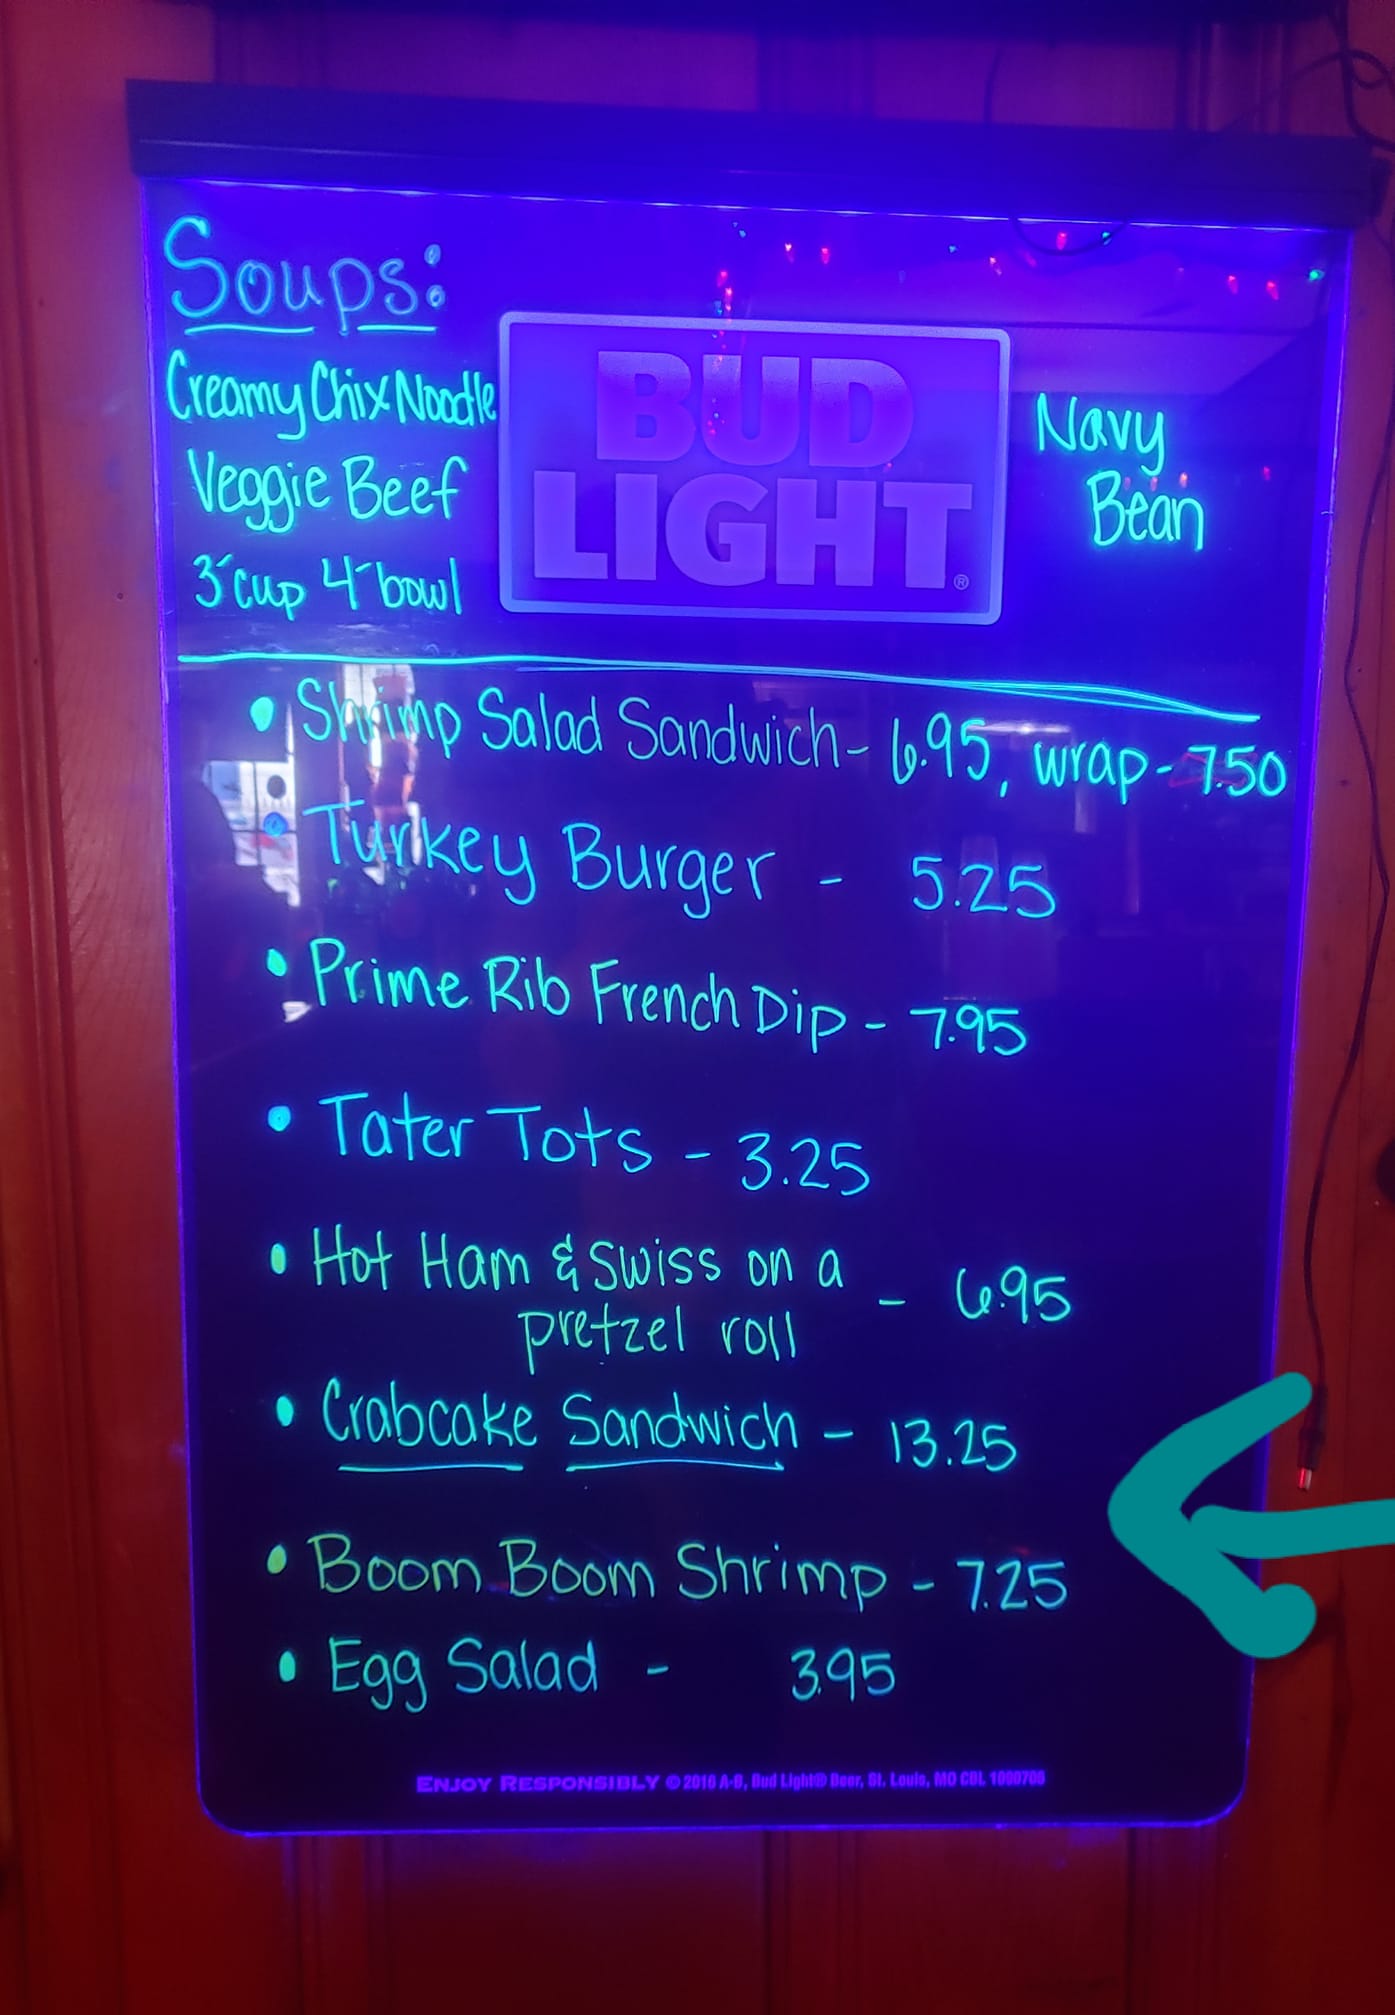 Soups:
Creamy Chix Noodle
Veggie Beef
3 cup 4 bowl
BUD
LIGHT®
Navy
Bean
• Shrimp Salad Sandwich - 6.95, wrap - 7.50
• Turkey Burger - 5.25
• Prime Rib French Dip - 7.95
• Tater Tots - 3.25
• Hot Ham & Swiss on a
pretzel roll - 6.95
• Crabcake Sandwich - 13.25
• Boom Boom Shrimp - 7.25
• Egg Salad - 3.95
ENJOY RESPONSIBLY © 2016 A-B, Bud Light® Beer, St. Louis, MO CBL 1000700